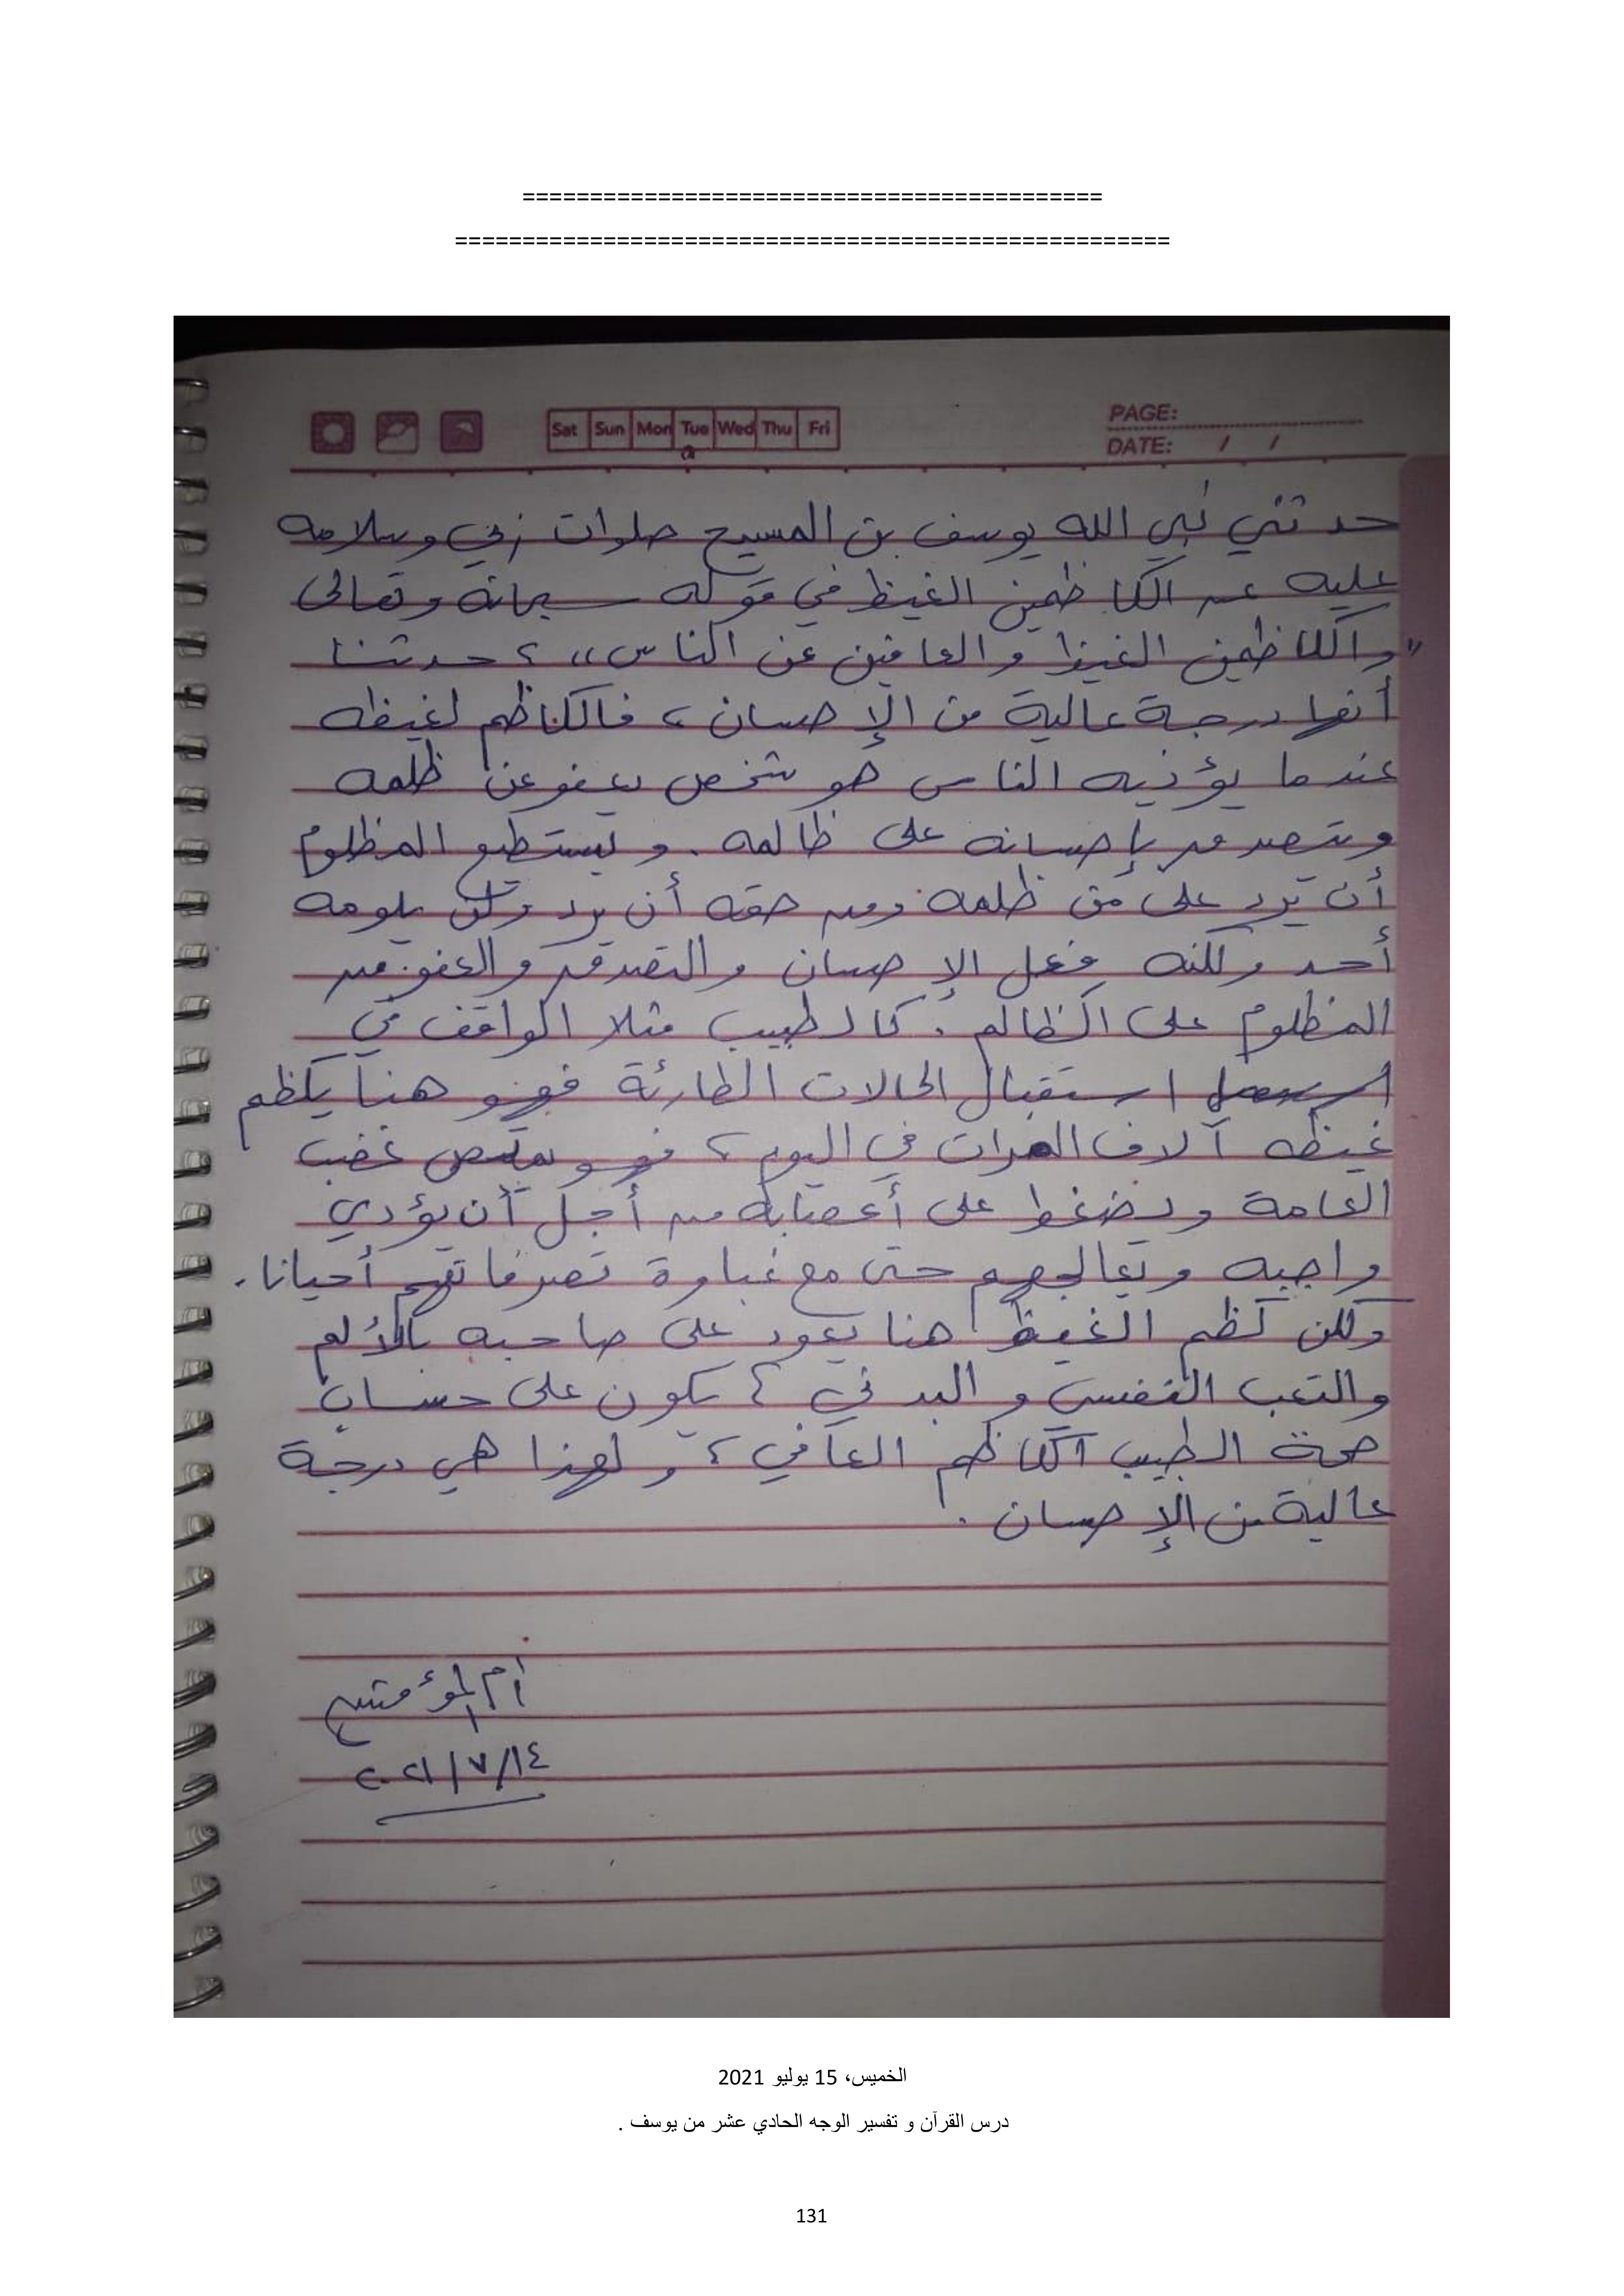 ===========================================
=====================================================
Sat Sun Mon Tue Wed Thu Fri
PAGE:
DATE: / /
حدثني نبي الله يوسف بن المسيح صلوات ربي وسلامه
عليه عن الكاظمين الغيظ في قوله سبحانه وتعالى
"والكاظمين الغيظ والعافين عن الناس" ، حدثنا
أنها درجة عالية من الإحسان ، فالكاظم لغيظه
عندما يؤذيه الناس هو شخص يعفو عن ظلمه
ويتصدق بإحسانه على ظالمه . ويستطيع المظلوم
أن يرد على من ظلمه ومن حقه أن يرد ولن يلومه
أحد ولكنه فعل الإحسان والتصدق والعفو من
المظلوم على الظالم . كالطبيب مثلا الواقف في
استقبال الحالات الطارئة فهو هنا يكظم
غيظه آلاف المرات في اليوم ، فهو يمتص غضب
العامة ويضغط على أعصابه من أجل أن يؤدي
واجبه ويعالجهم حتى مع غباوة تصرفاتهم أحيانا .
ولكن كظم الغيظ هنا يعود على صاحبه بالألم
والتعب النفسي والبدني ، يكون على حساب
صحة الطبيب الكاظم العافي ، ولهذا هي درجة
عالية من الإحسان .
أم المؤمنين
٢٠٢١/٧/١٤
الخميس، 15 يوليو 2021
درس القرآن و تفسير الوجه الحادي عشر من يوسف .
131